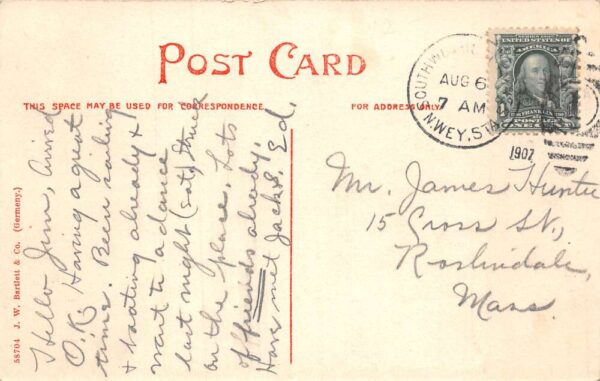 POST CARD
THIS SPACE MAY BE USED FOR CORRESPONDENCE.
FOR ADDRESS ONLY
Hello Jim, arived
O.K. Having a great
time. Been sailing
+ boating already +
went to a dance
last night (Sat.) Struck
on the place. Lots
of friends already.
Have met Jack S. Ed.
58704 J. W. Bartlett & Co. (Germany.)
AUG 6
7 AM
N.WEY. STA
1907
UNITED STATES OF
AMERICA
FRANKLIN
POSTAGE
ONE
Mr. James Hunte
15 Cross St,
Roslindale,
Mass.